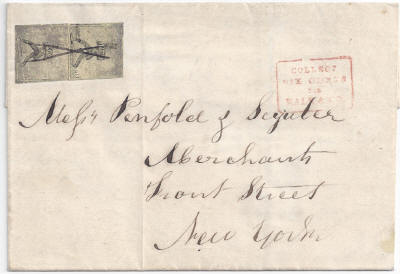 COLLECT
SIX CENTS
FOR
Messrs Penfold &
Merchants
Front Street
New York